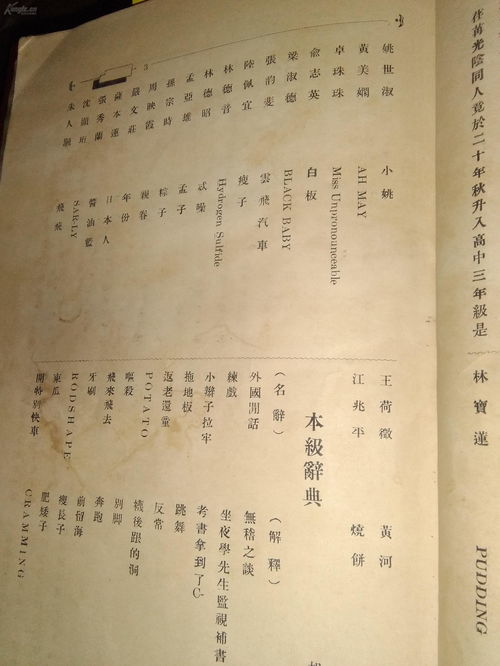 荏苒光陰同人竟於二十年秋升入高中三年級是
林寶蓮 PUDDING
姚世淑 小姚
黃美嫻 AH MAY
卓珠珠 Miss Unpronounceable
俞志英 白板
梁淑德 BLACK BABY
張韵斐 雲飛汽車
陸佩宜 瘦子
林德音 Hydrogen Sulfide
林德昭 忒噪
孟亞雄 孟子
孫宗時 粽子
周映霞 親眷
嚴文莊 年份
薩本蓮 日本人
張秀蘭 醬油藍
沈 SAR-LY
朱人 飛飛
3
王荷徵 黃河
江兆平 燒餅
本級辭典
(名辭) (解釋)
外國閒話 無稽之談
練戲 坐夜學先生監視補書
小辮子拉牢 考書拿到了C-
拖地板 跳舞
返老還童 反常
POTATO 襪後跟的洞
嘔殺 別脚
飛來飛去 奔跑
牙刷 前留海
RODSHAPE 瘦長子
東瓜 肥矮子
開特別快車 CRAMMING